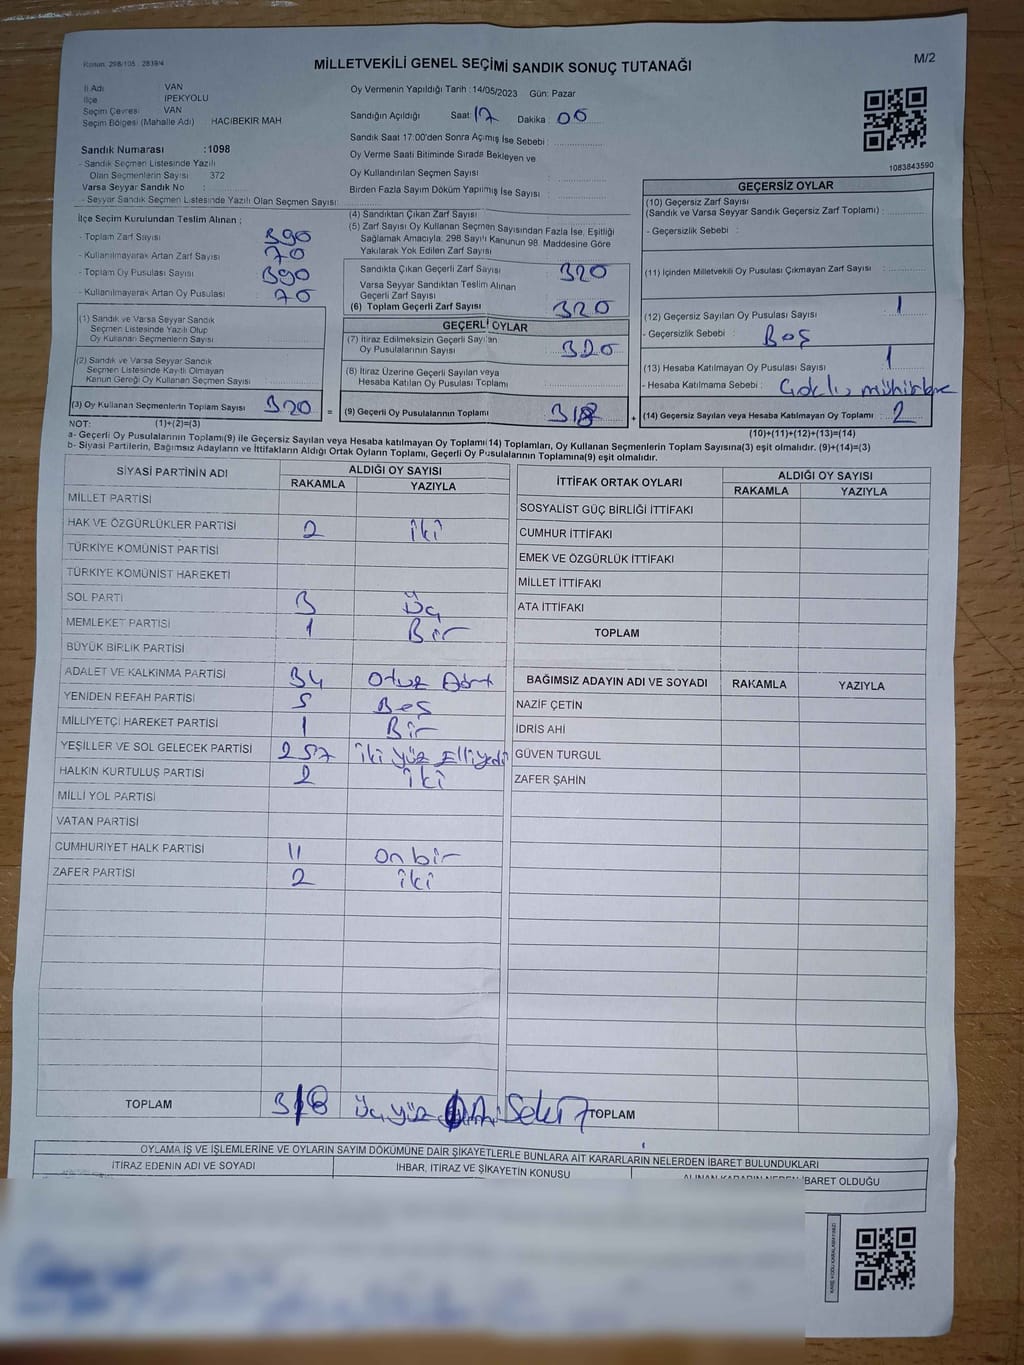 Kanun: 298/105 : 2839/4
M/2
MİLLETVEKİLİ GENEL SEÇİMİ SANDIK SONUÇ TUTANAĞI
İl Adı VAN
İlçe İPEKYOLU
Seçim Çevresi VAN
Seçim Bölgesi (Mahalle Adı) HACIBEKİR MAH
Sandık Numarası :1098
- Sandık Seçmen Listesinde Yazılı
Olan Seçmenlerin Sayısı 372
Varsa Seyyar Sandık No :
- Seyyar Sandık Seçmen Listesinde Yazılı Olan Seçmen Sayısı:
Oy Vermenin Yapıldığı Tarih :14/05/2023 Gün: Pazar
Sandığın Açıldığı Saat: 17 Dakika : 00
Sandık Saat 17:00'den Sonra Açılmış İse Sebebi :
Oy Verme Saati Bitiminde Sırada Bekleyen ve
Oy Kullandırılan Seçmen Sayısı :
Birden Fazla Sayım Döküm Yapılmış İse Sayısı :
1083843590
İlçe Seçim Kurulundan Teslim Alınan ;
- Toplam Zarf Sayısı 390
- Kullanılmayarak Artan Zarf Sayısı 70
- Toplam Oy Pusulası Sayısı 390
- Kullanılmayarak Artan Oy Pusulası 70
(1) Sandık ve Varsa Seyyar Sandık
Seçmen Listesinde Yazılı Olup
Oy Kullanan Seçmenlerin Sayısı :
(2) Sandık ve Varsa Seyyar Sandık
Seçmen Listesinde Kayıtlı Olmayan
Kanun Gereği Oy Kullanan Seçmen Sayısı :
(3) Oy Kullanan Seçmenlerin Toplam Sayısı 320 =
(1)+(2)=(3)
(4) Sandıktan Çıkan Zarf Sayısı :
(5) Zarf Sayısı Oy Kullanan Seçmen Sayısından Fazla İse, Eşitliği
Sağlamak Amacıyla: 298 Sayılı Kanunun 98. Maddesine Göre
Yakılarak Yok Edilen Zarf Sayısı :
Sandıkta Çıkan Geçerli Zarf Sayısı 320
Varsa Seyyar Sandıktan Teslim Alınan
Geçerli Zarf Sayısı
(6) Toplam Geçerli Zarf Sayısı 320
GEÇERLİ OYLAR
(7) İtiraz Edilmeksizin Geçerli Sayılan
Oy Pusulalarının Sayısı : 320
(8) İtiraz Üzerine Geçerli Sayılan veya
Hesaba Katılan Oy Pusulası Toplamı :
(9) Geçerli Oy Pusulalarının Toplamı 318 +
GEÇERSİZ OYLAR
(10) Geçersiz Zarf Sayısı
(Sandık ve Varsa Seyyar Sandık Geçersiz Zarf Toplamı) :
- Geçersizlik Sebebi :
(11) İçinden Milletvekili Oy Pusulası Çıkmayan Zarf Sayısı :
(12) Geçersiz Sayılan Oy Pusulası Sayısı : 1
- Geçersizlik Sebebi : Boş
(13) Hesaba Katılmayan Oy Pusulası Sayısı : 1
- Hesaba Katılmama Sebebi :
(14) Geçersiz Sayılan veya Hesaba Katılmayan Oy Toplamı : 2
(10)+(11)+(12)+(13)=(14)
NOT:
a- Geçerli Oy Pusulalarının Toplamı(9) ile Geçersiz Sayılan veya Hesaba katılmayan Oy Toplamı(14) Toplamları, Oy Kullanan Seçmenlerin Toplam Sayısına(3) eşit olmalıdır. (9)+(14)=(3)
b- Siyasi Partilerin, Bağımsız Adayların ve İttifakların Aldığı Ortak Oyların Toplamı, Geçerli Oy Pusulalarının Toplamına(9) eşit olmalıdır.
SİYASİ PARTİNİN ADI ALDIĞI OY SAYISI
RAKAMLA YAZIYLA
MİLLET PARTİSİ
HAK VE ÖZGÜRLÜKLER PARTİSİ 2 iki
TÜRKİYE KOMÜNİST PARTİSİ
TÜRKİYE KOMÜNİST HAREKETİ
SOL PARTİ 3 Üç
MEMLEKET PARTİSİ 1 Bir
BÜYÜK BİRLİK PARTİSİ
ADALET VE KALKINMA PARTİSİ 34 Otuz Dört
YENİDEN REFAH PARTİSİ 5 Beş
MİLLİYETÇİ HAREKET PARTİSİ 1 Bir
YEŞİLLER VE SOL GELECEK PARTİSİ 257 iki yüz Elliyedi
HALKIN KURTULUŞ PARTİSİ 2 iki
MİLLİ YOL PARTİSİ
VATAN PARTİSİ
CUMHURİYET HALK PARTİSİ 11 On bir
ZAFER PARTİSİ 2 iki
TOPLAM 318 üç yüz Sekiz
İTTİFAK ORTAK OYLARI ALDIĞI OY SAYISI
RAKAMLA YAZIYLA
SOSYALİST GÜÇ BİRLİĞİ İTTİFAKI
CUMHUR İTTİFAKI
EMEK VE ÖZGÜRLÜK İTTİFAKI
MİLLET İTTİFAKI
ATA İTTİFAKI
TOPLAM
BAĞIMSIZ ADAYIN ADI VE SOYADI RAKAMLA YAZIYLA
NAZİF ÇETİN
İDRİS AHİ
GÜVEN TURGUL
ZAFER ŞAHİN
TOPLAM
OYLAMA İŞ VE İŞLEMLERİNE VE OYLARIN SAYIM DÖKÜMÜNE DAİR ŞİKAYETLERLE BUNLARA AİT KARARLARIN NELERDEN İBARET BULUNDUKLARI
İTİRAZ EDENİN ADI VE SOYADI İHBAR, İTİRAZ VE ŞİKAYETİN KONUSU ALINAN KARARIN NEDEN İBARET OLDUĞU